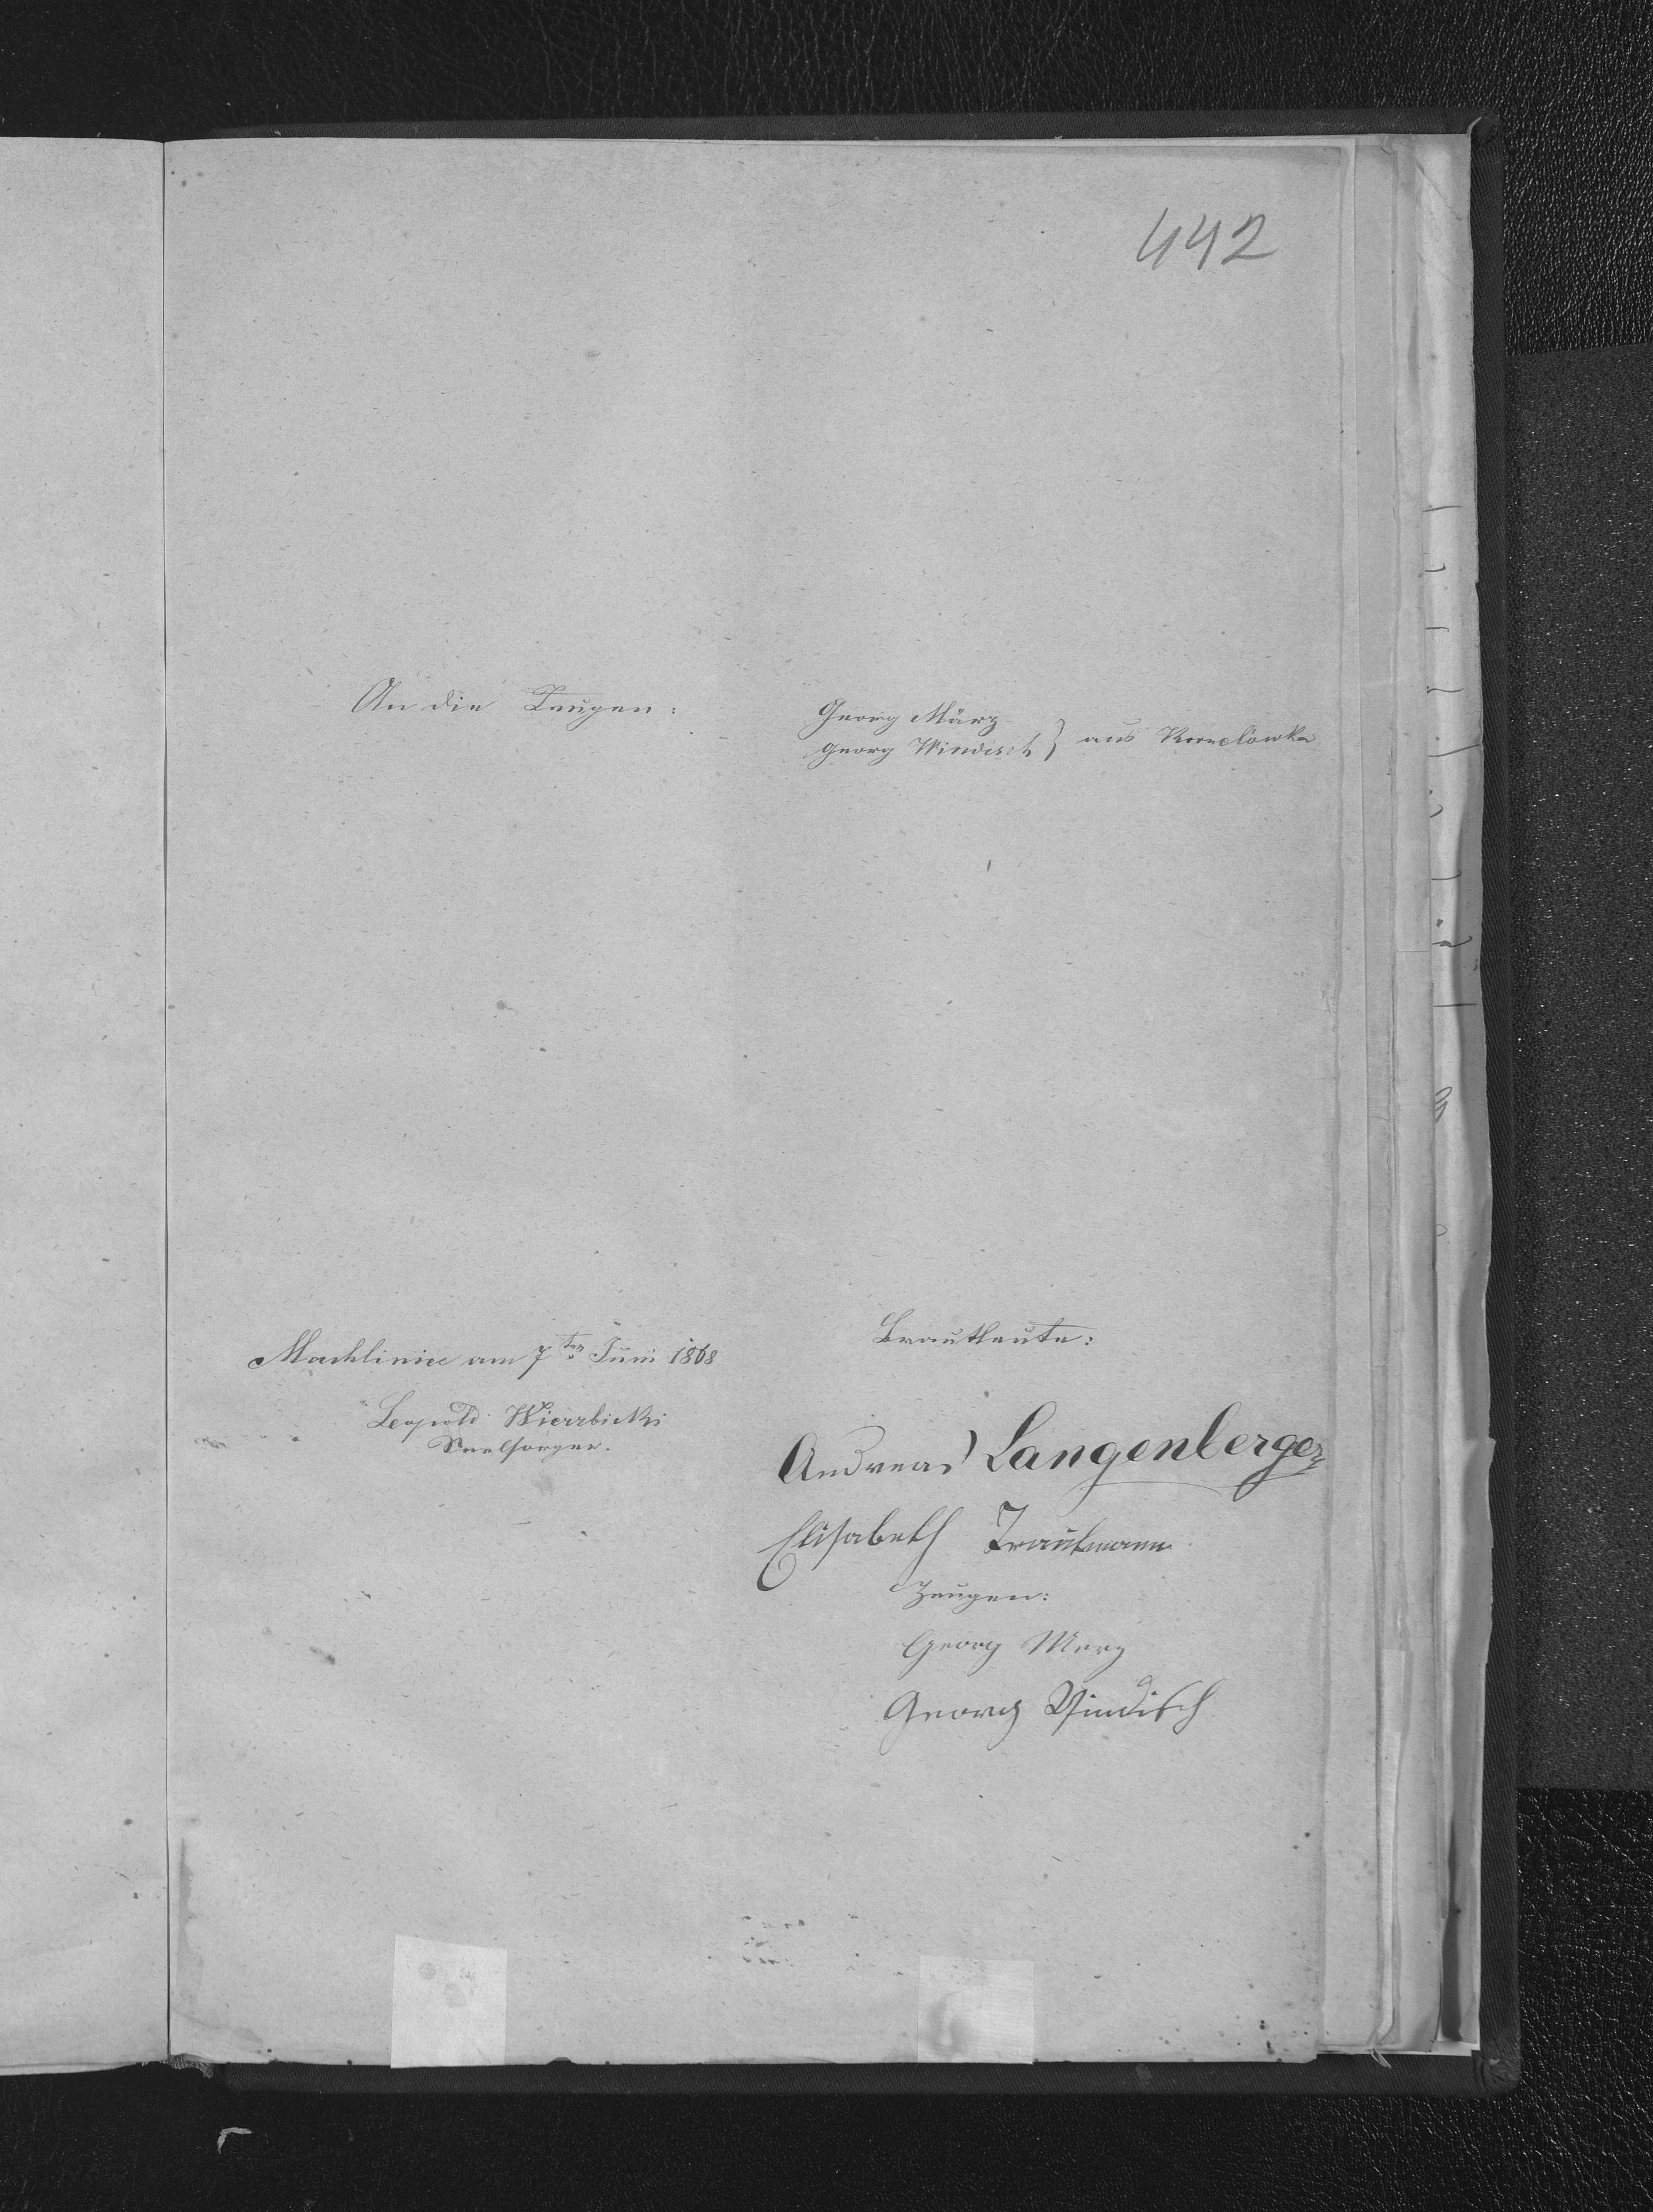 442
An die Zeugen:
Georg März
Georg Windisch } aus Kornelówka
Machlinice am 7ten Juni 1868
Leopold Wierzbicki
Seelsorger.
Brautleute:
Andreas Langenberger
Elisabeth Trautmann
Zeugen:
Georg Merz
Georg Windisch